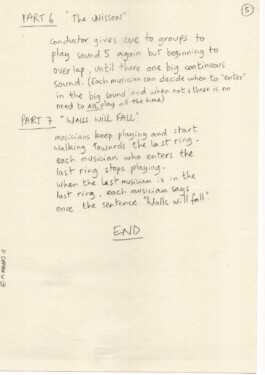 5
PART 6 "The Unisson"
conductor gives cue to groups to
play sound 5 again but beginning to
overlap, until there one big continous
sound. (Each musician can decide when to "enter"
in the big sound and when not: there is no
need to all play all the time)
PART 7 "WALLS WILL FALL"
musicians keep playing and start
walking towards the last ring.
each musician who enters the
last ring stops playing.
When the last musician is in the
last ring, each musician says
once the sentence "Walls will fall"
END